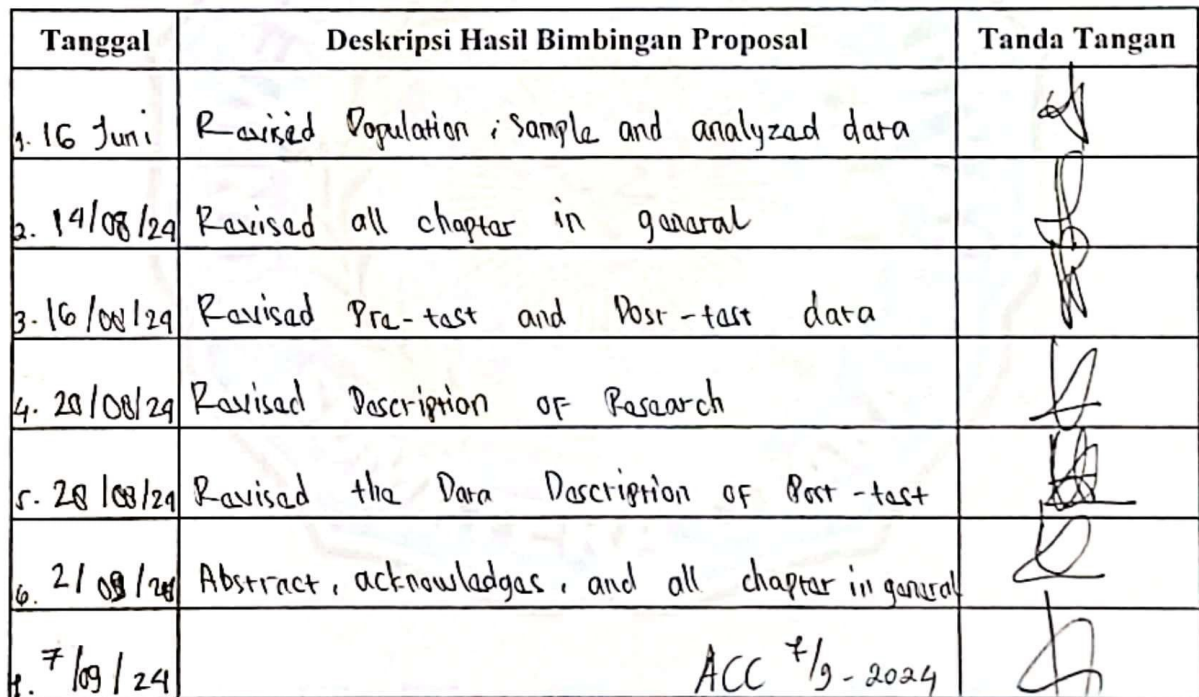 Tanggal Deskripsi Hasil Bimbingan Proposal Tanda Tangan
1. 16 Juni Revised Population, Sample and analyzed data
2. 14/08/24 Revised all chapter in general
3. 16/08/24 Revised Pre-test and Post-test data
4. 28/08/24 Revised Description of Research
5. 28/08/24 Revised the Data Description of Post-test
6. 2/09/24 Abstract, acknowledges, and all chapter in general
7. 7/09/24 ACC 7/9-2024